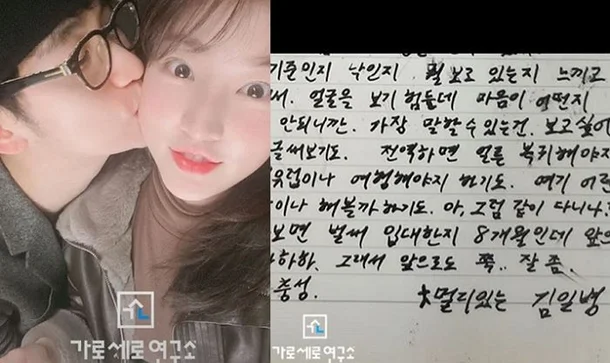 기준인지 낙인지 뭘 보고 있는지 느끼고
써. 얼굴을 보기 힘든데 마음이 어떤지
안되니깐. 가장 말할 수 있는건. 보고싶어
글써보기도. 전역하면 얼른 복귀해야지
유럽이나 여행해야지 하기도. 여기 어
이나 해볼까 하기도. 아, 그럼 같이 다니나,
보면 벌써 입대한지 8개월인데 앞으
하하. 그래서 앞으로도 쭉.. 잘 좀.
충성.
멀리있는 김일병
가로세로연구소
가로세로연구소